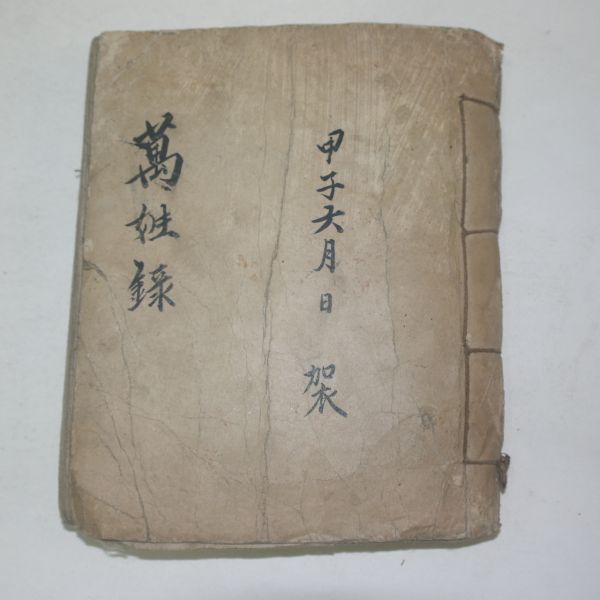 甲子六月日 袈
萬姓錄